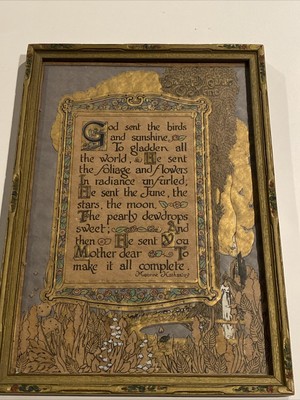 God sent the birds
and sunshine,
To gladden all
the world; He sent
the foliage and flowers
In radiance unfurled;
He sent the June, the
stars, the moon,
The pearly dewdrops
sweet; And
then He sent You
Mother dear To
make it all complete.